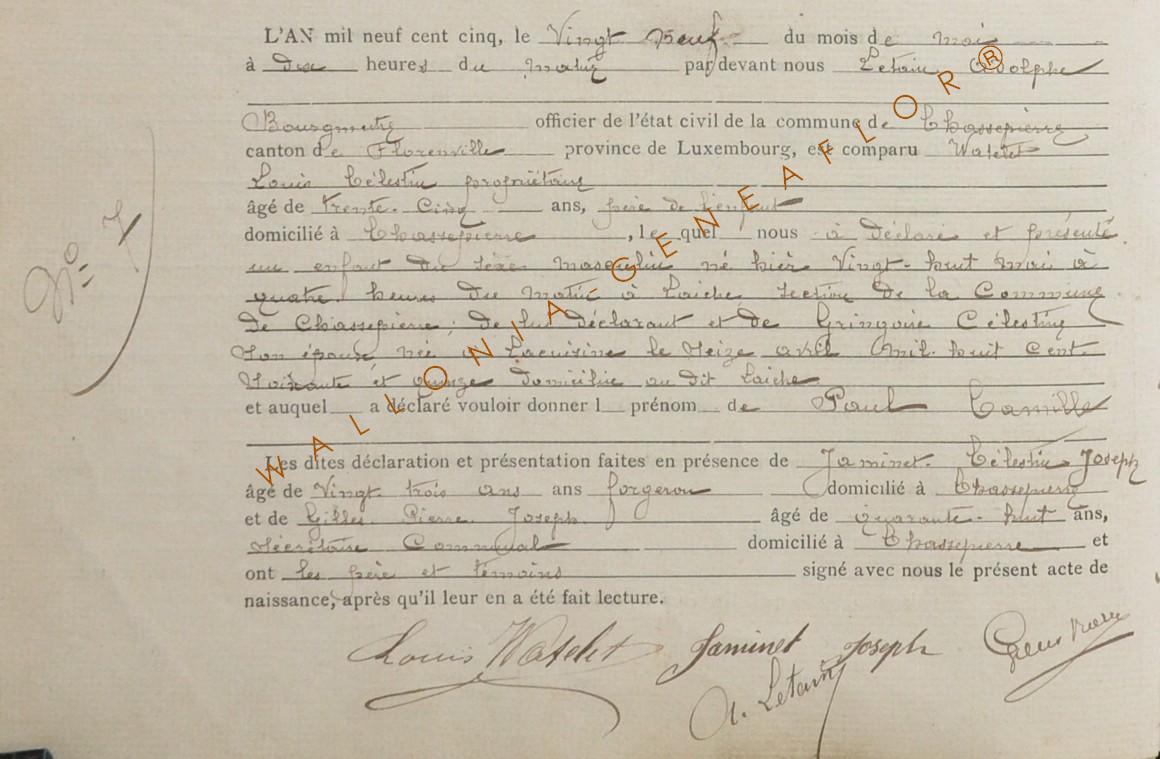 L'AN mil neuf cent cinq, le Vingt neuf du mois de mai
à dix heures du matin par devant nous Letain Adolphe
Bourgmestre officier de l'état civil de la commune de Chassepierre
canton de Florenville province de Luxembourg, est comparu Watelet
Louis Célestin propriétaire
âgé de trente-Cinq ans, père de l'enfant
domicilié à Chassepierre, lequel nous à déclaré et présenté
un enfant du sexe masculin né hier Vingt-huit mai à
quatre heures du matin à Laiche section de la Commune
de Chassepierre, de lui déclarant et de Gringoire Célestine
Son épouse née à Lacuisine le seize avril mil huit cent
Soixante et quinze domiciliée au dit Laiche
et auquel a déclaré vouloir donner l prénom de Paul Camille
Les dites déclaration et présentation faites en présence de Jaminet Célestin Joseph
âgé de Vingt trois ans ans forgeron domicilié à Chassepierre
et de Gilles Pierre Joseph âgé de quarante-huit ans,
Secrétaire Communal domicilié à Chassepierre et
ont les père et témoins signé avec nous le présent acte de
naissance, après qu'il leur en a été fait lecture.
N° 7
Louis Watelet Jaminet Joseph
A. Letain
WALLONIA-GENEAFLOR®